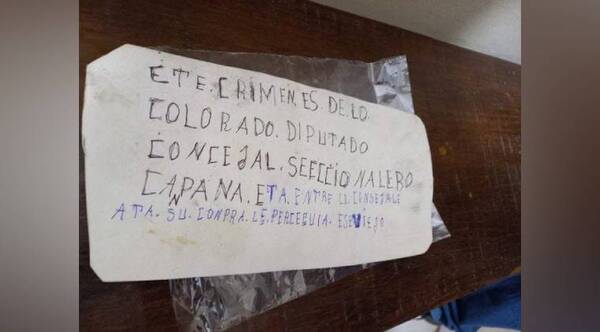 ETE.CRIMEN.ES DE.LO
COLORADO.DIPUTADO
CONCEJAL.SEECCIONALERO
CAPANA.ETA.ENTRE LO.CONSEJALE
ATA.SU.CONPRA.LE.PERCEGUIA.ESEVIEJO